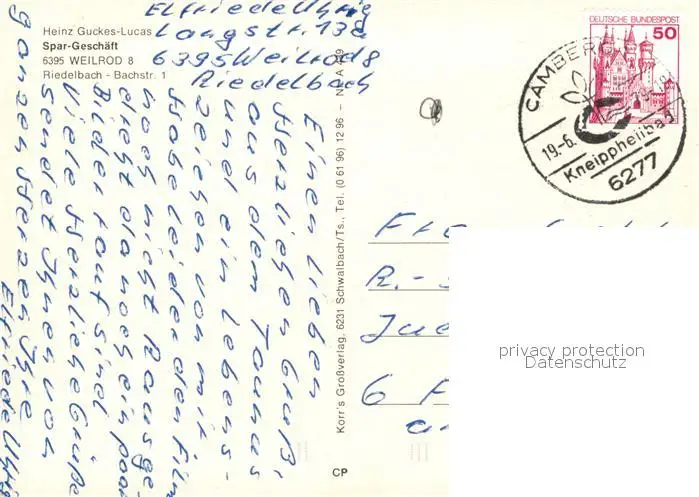 Heinz Guckes-Lucas
Spar-Geschäft
6395 WEILROD 8
Riedelbach - Bachstr. 1
Elfriede Uhrig
Langstr. 13a
6395 Weilrod 8
Riedelbach
DEUTSCHE BUNDESPOST
50
CAMBERG
19.-6.
Kneippheilbad
6277
Einen lieben
Herzlichen Gruß,
aus dem Taunus
und ein Lebens-
zeichen von mir.
Habe leider den Film
noch nicht Rausge-
dreht da noch ein paar
Bilder drauf sind
Viele Herzliche Grüße
sendet Ihnen von
ganzen Herzen Ihre
Elfriede Uhrig
Korr's Großverlag, 6231 Schwalbach/Ts., Tel. (0 61 96) 12 96 – Nr. A
CP
R.-
6 F
privacy protection
Datenschutz